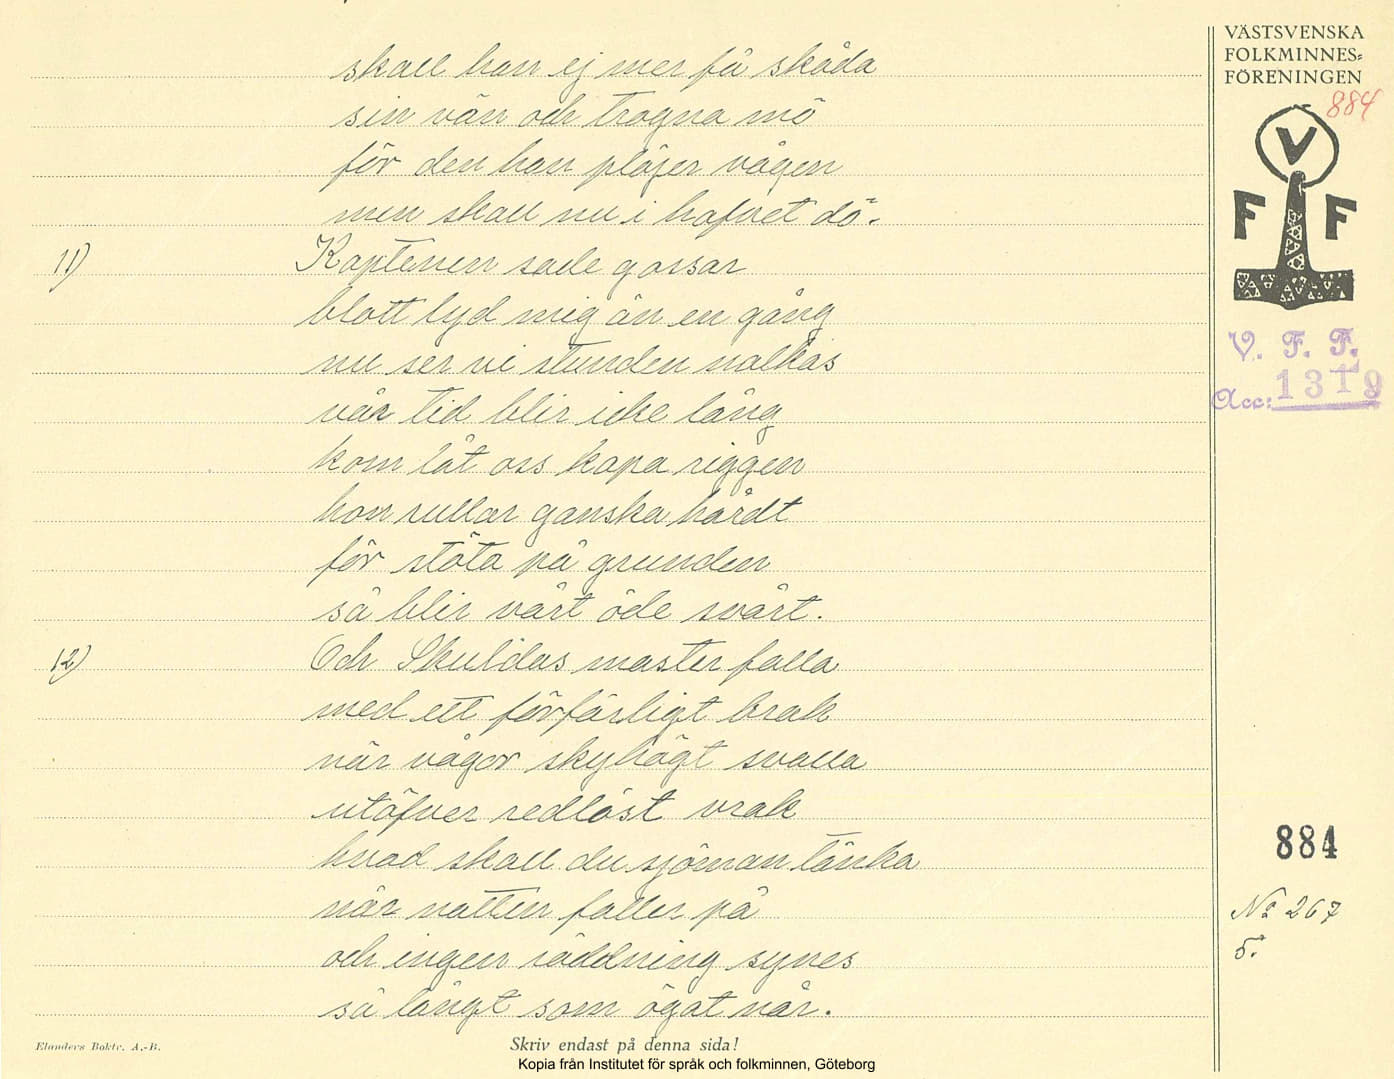 VÄSTSVENSKA
FOLKMINNES=
FÖRENINGEN
884
V
F F
V. F. F.
Acc: 1319
skall han ej mer få skåda
sin vän och trogna mö
för den han plöjer vågen
men skall nu i hafvet dö.
11) Kaptenen sade gossar
blott lyd mig än en gång
nu ser vi stunden nalkas
vår tid blir icke lång
kom låt oss kapa riggen
hon rullar ganska hårdt
för stöta på grunden
så blir vårt öde svårt.
12) Och Skuldas master falla
med ett förfärligt brak
när vågor skyhögt svalla
utöfver redlöst vrak
hvad skall du sjöman tänka
när natten faller på
och ingen räddning synes
så långt som ögat når.
884
No 267
5.
Elanders Boktr. A.-B.
Skriv endast på denna sida!
Kopia från Institutet för språk och folkminnen, Göteborg